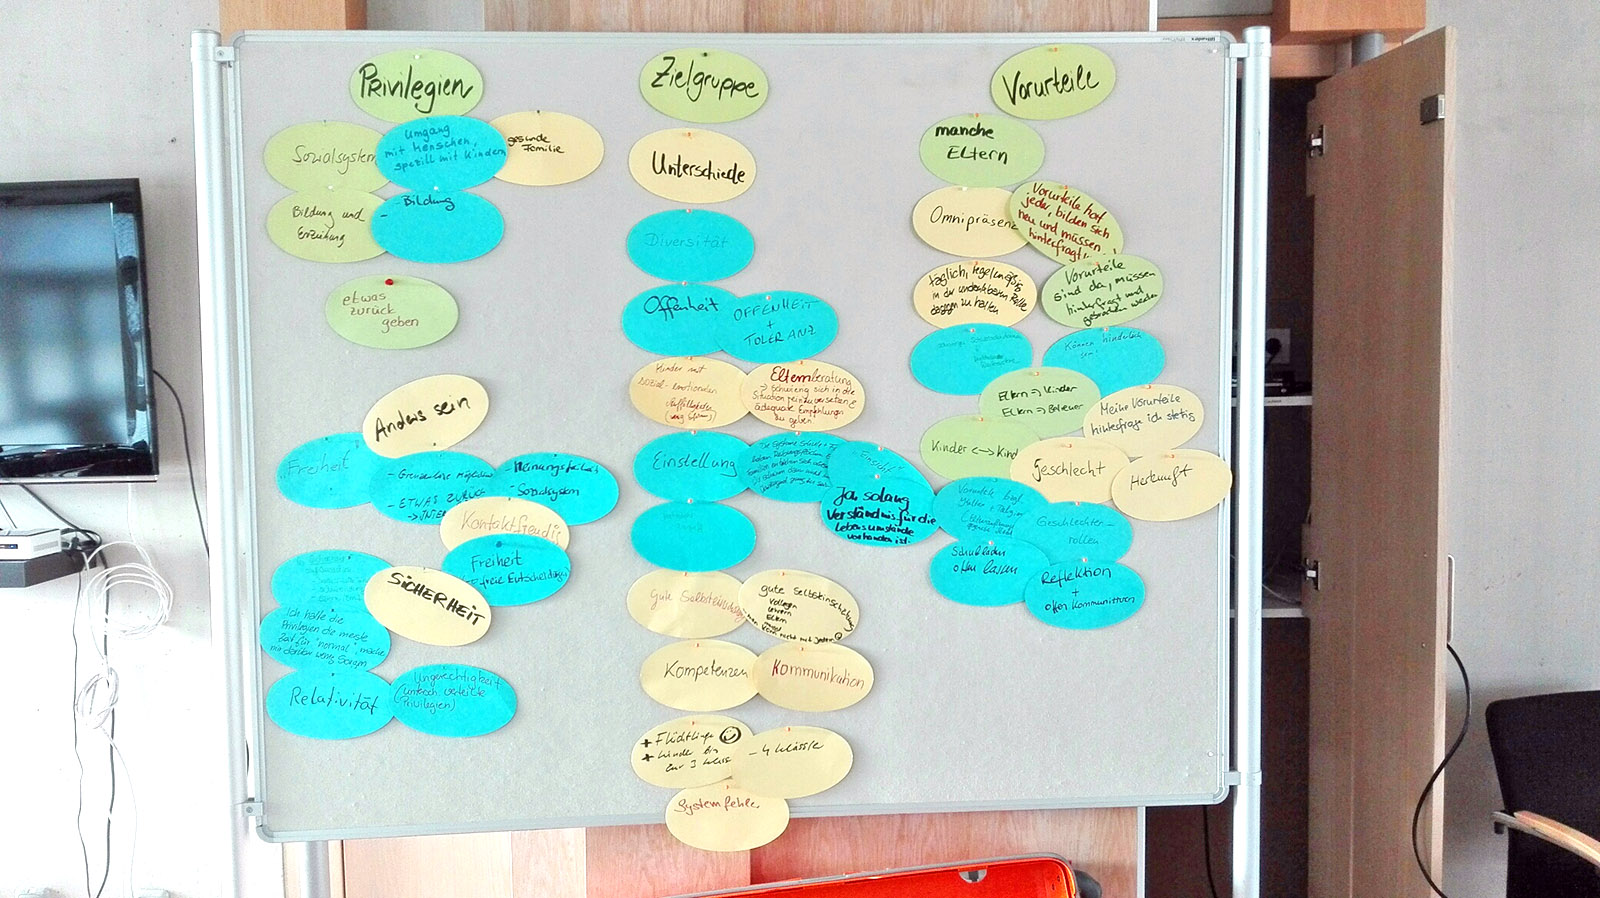 Privilegien
Sozialsystem
Umgang
mit Menschen,
speziell mit Kindern
gesunde
Familie
Bildung und
Erziehung
- Bildung
-
etwas
zurück
geben
Anders sein
"Freiheit"
- Grenzenlose
- ETWAS
- Meinungsfreiheit
- Sozialsystem
Kontaktfreudig
Freiheit
freie Entscheidung
SICHERHEIT
Ich halte die
Privilegien die meiste
Zeit für "normal", mache
mir darüber wenig Sorgen
Relativität
Ungerechtigkeit
(unterch. verteilte
Privilegien)
Zielgruppe
Unterschiede
Diversität
Offenheit
OFFENHEIT
+
TOLERANZ
Kinder mit
sozial-emotionalen
Auffälligkeiten
Elternberatung
→ schwierig sich in die
Situation rein zu versetzen &
adäquate Empfehlungen
zu geben
Einstellung
Ja, solang
Verständnis für die
Lebensumstände
vorhanden ist.
Gute Selbsteinschätzung
gute Selbsteinschätzung
Kollegen
Lehrern
Eltern
Kompetenzen
Kommunikation
+ Flüchtlinge
+ Kinder bis
zur 3 Klasse
- 4 Klässle
Systemfehler
Vorurteile
manche
Eltern
Omnipräsenz
Vorurteile hat
jeder, bilden sich
neu und müssen
hinterfragt
täglich, regelmäßig
in der unmittelbaren Rolle
dagegen zu halten
Vorurteile
sind da, müssen
hinterfragt und
gebrochen werden
Können hinderlich
sein!
Eltern → Kinder
Eltern → Betreuer
Meine Vorurteile
hinterfrage ich stetig
Kinder <-> Kind
Geschlecht
Herkunft
Vorurteile bzgl.
Kultur + Religion
Geschlechter-
rollen
Schubladen
offen lassen
Reflektion
+
offen kommunizieren